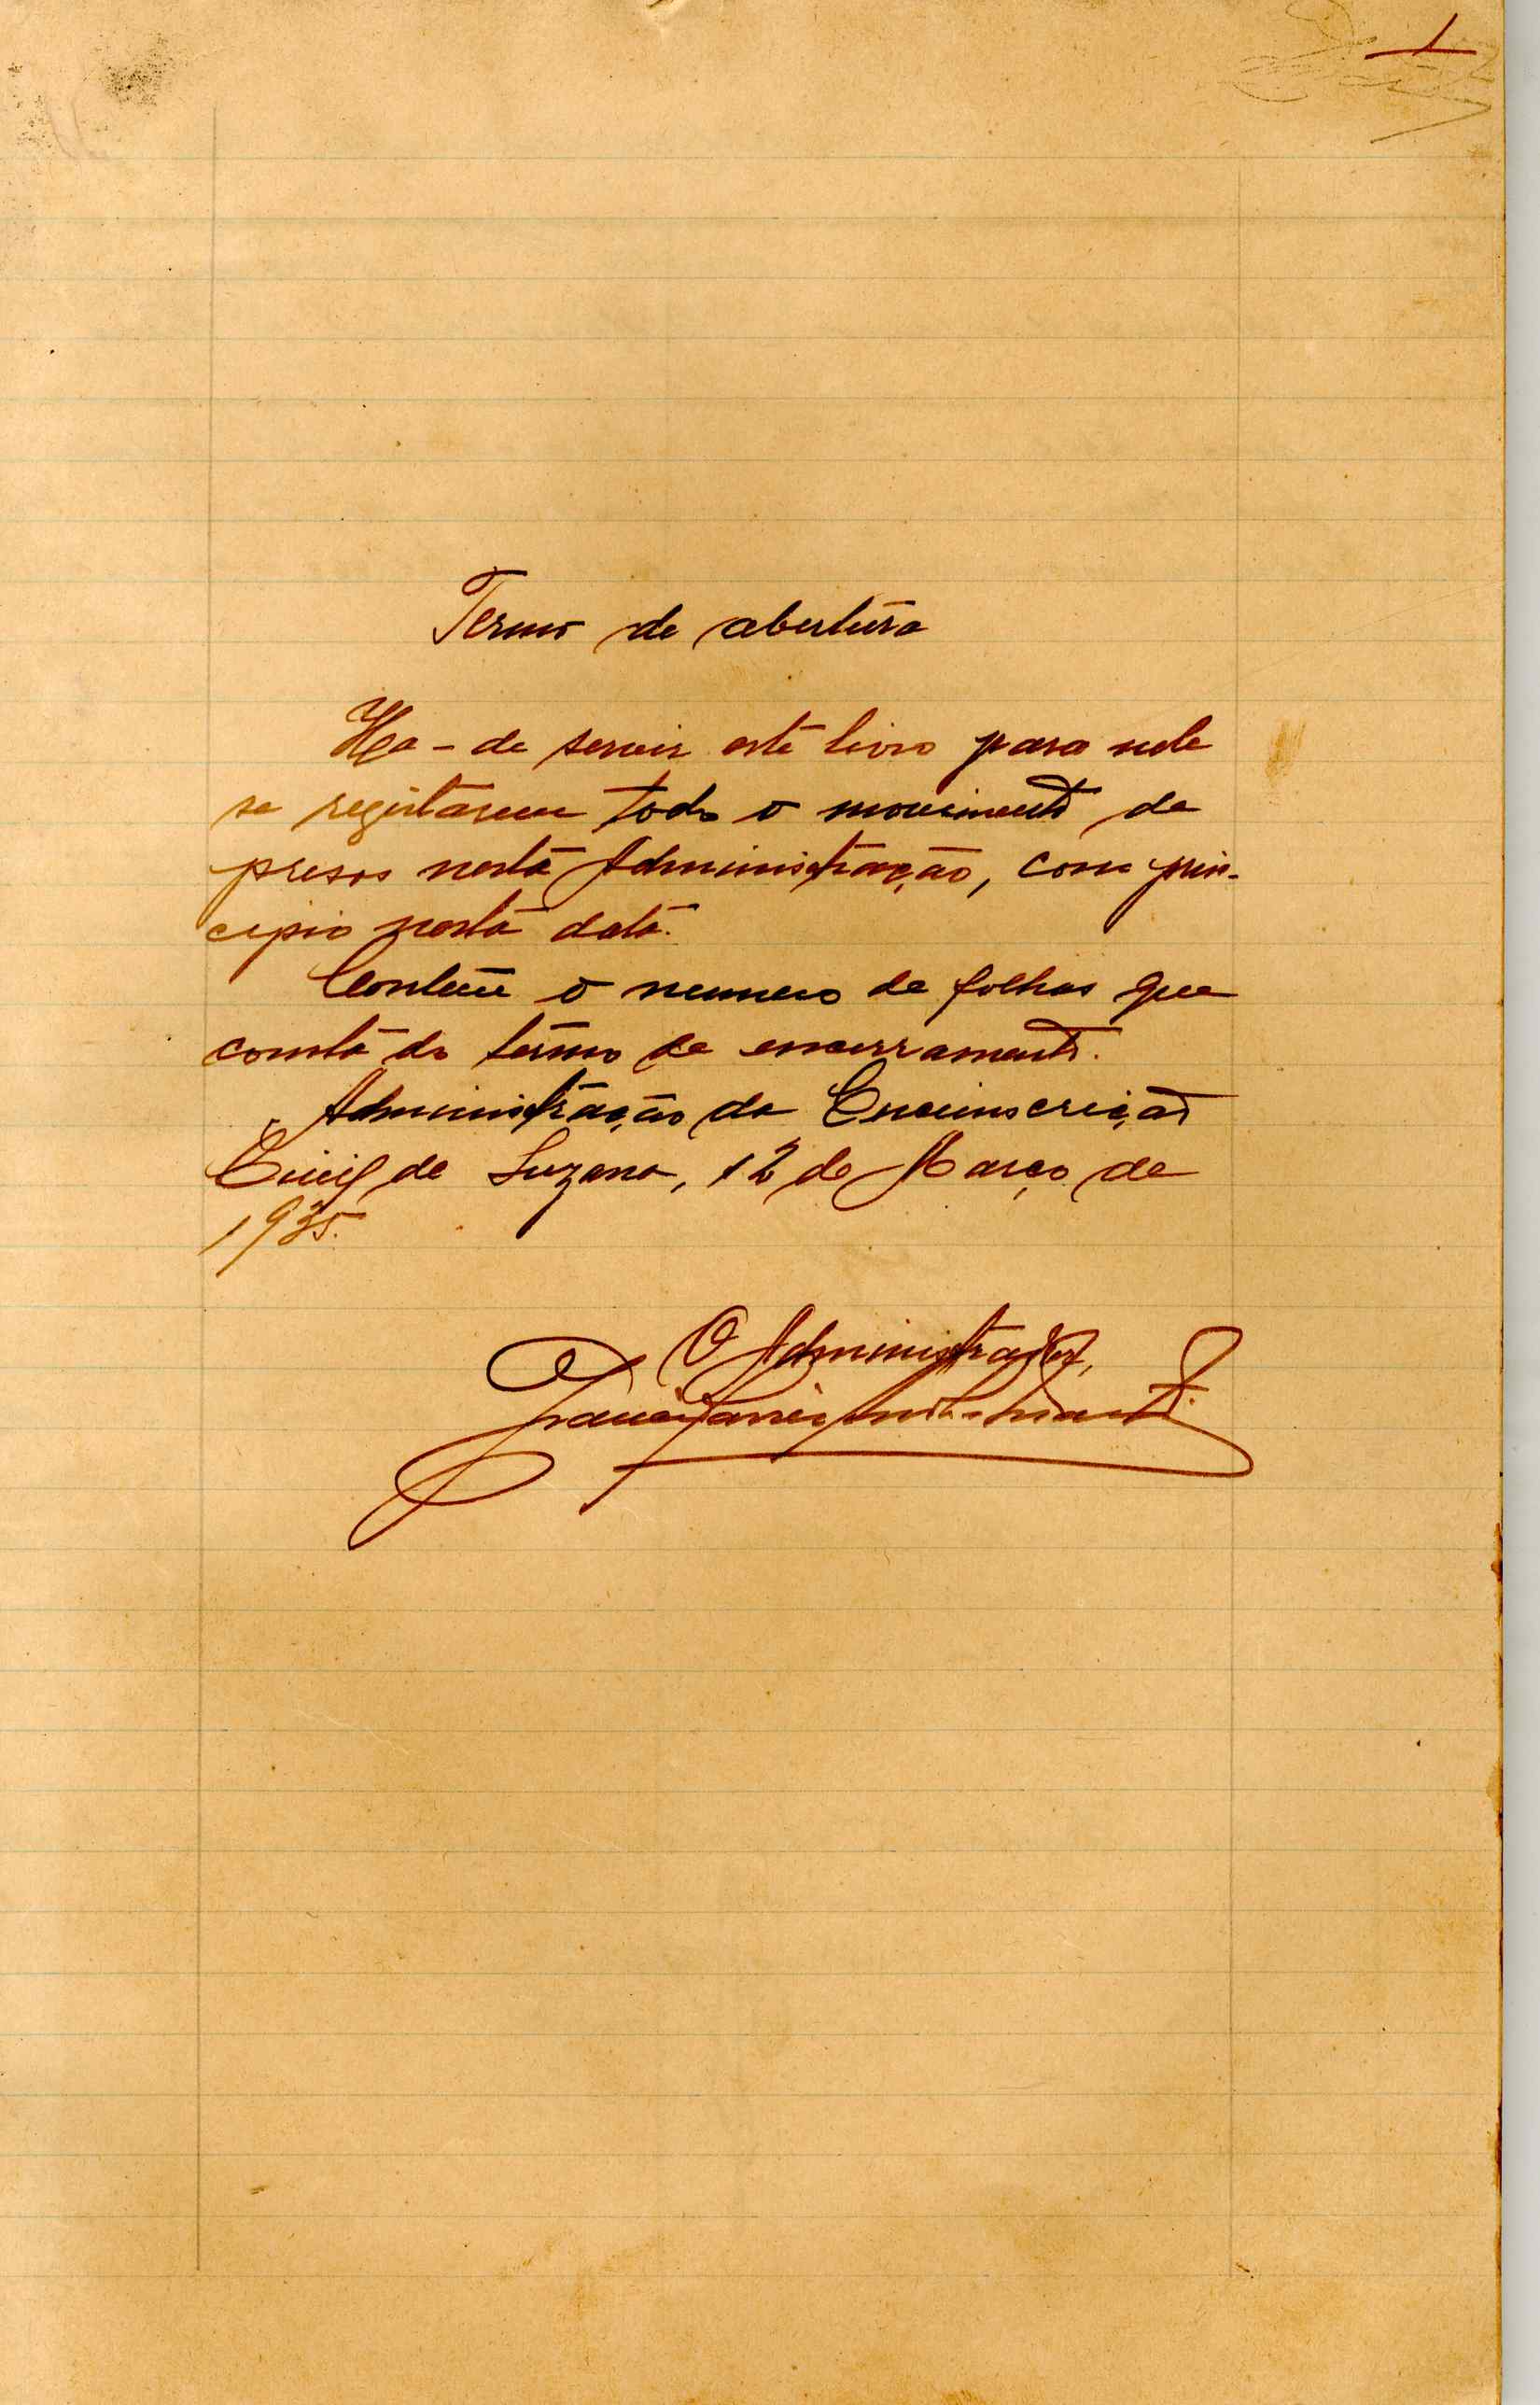 1
Termo de abertura
Ha-de servir este livro para nele
se registarem todo o movimento de
presos nesta Administração, com prin-
cipio nesta data.
Contem o numero de folhas que
consta do termo de encerramento.
Administração da Circunscrição
Civil de Suzana, 12 de Março de
1935.
O Administrador,